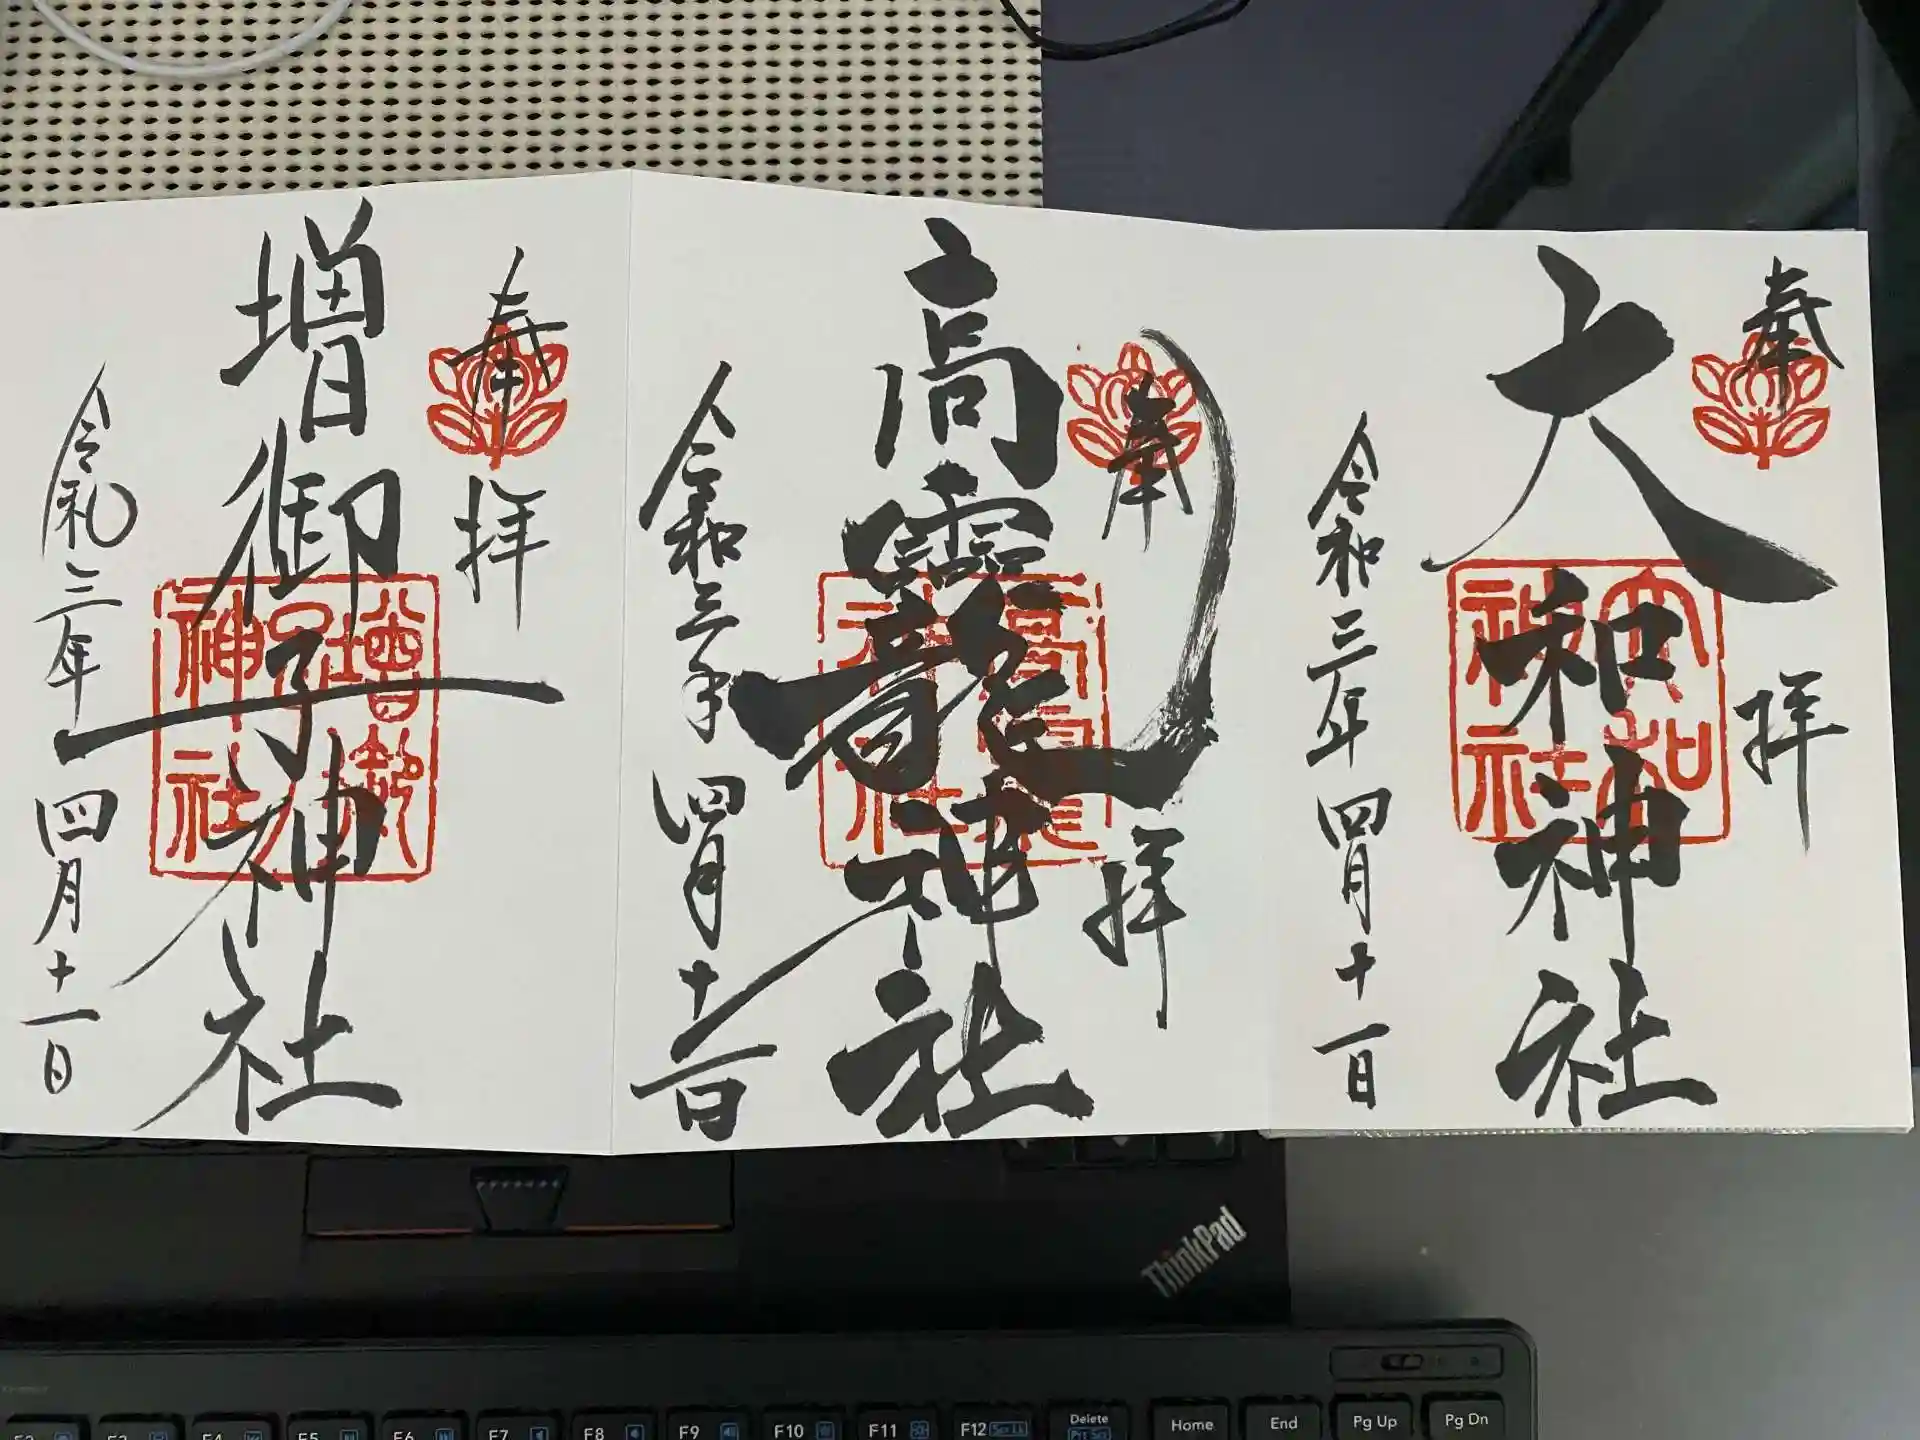 奉拝
大和神社
大和神社
令和三年四月十一日
奉拝
高靇神社
令和三年四月十一日
奉拝
増御子神社
増御子神社
令和三年四月十一日
ThinkPad
F3
F4
F5
F6
F7
F8
F9
F10
F11
F12 Scr Lk
Delete
Prt Sc
Home
End
Pg Up
Pg Dn